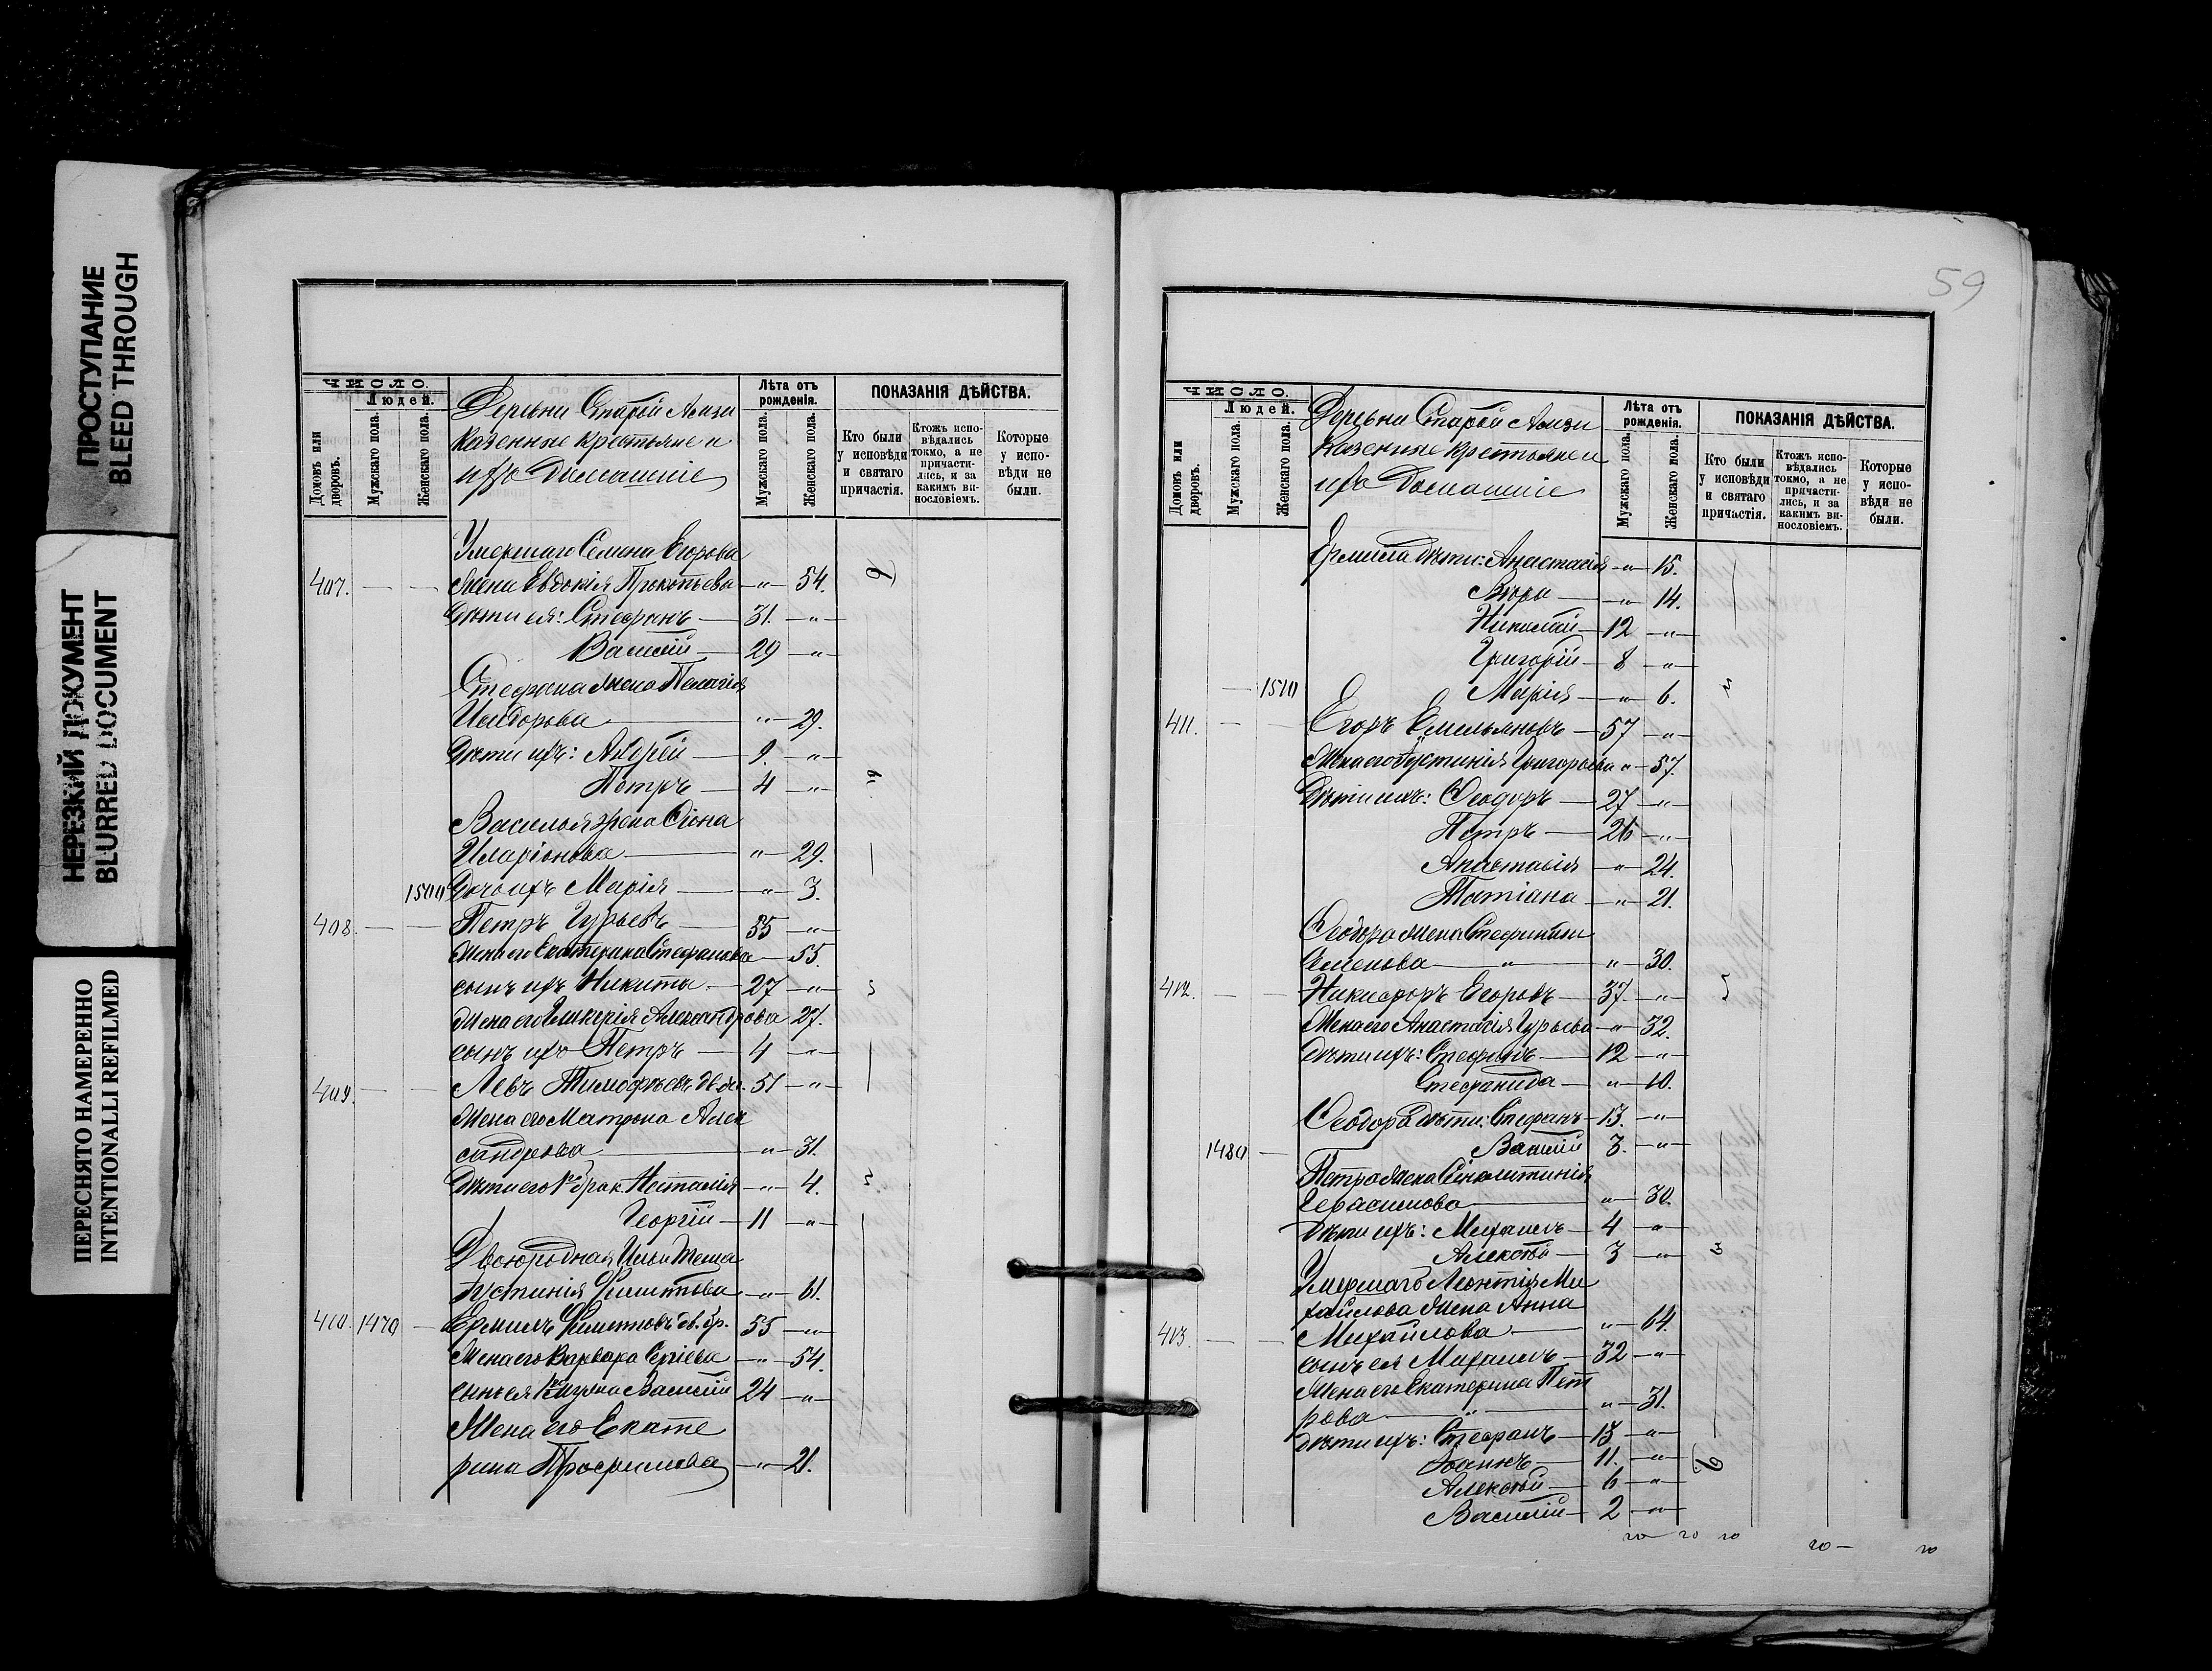 ПРОСТУПАНИЕ
BLEED THROUGH
НЕРЕЗКИЙ ДОКУМЕНТ
BLURRED DOCUMENT
ПЕРЕСНЯТО НАМЕРЕННО
INTENTIONALLI REFILMED
ЧИСЛО.
Людей.
Домовъ или дворовъ.
Мужскаго пола.
Женскаго пола.
Деревни Старой
казенные крестьяне и
ихъ Домашніе
Лѣта отъ рожденія.
Мужскаго пола.
Женскаго пола.
ПОКАЗАНІЯ ДѢЙСТВА.
Кто были у исповѣди и святаго причастія.
Ктожъ испо-вѣдались токмо, а не причасти-лись, и за какимъ ви-нословіемъ.
Которые у испо-вѣди не были.
Умершаго Семена Егорова
407. — — жена Евдокія Прокопьева — „ — 54.
Дѣти ея: Стефанъ — 31. — „ —
Василій — 29 — „ —
Стефана жена Пелагія
Исидорова — „ — 29.
Дѣти ихъ: Андрей — 9. — „ —
Петръ — 4 — „ —
Василья жена
Иларіонова — „ — 29.
1500 Дочь ихъ Марія — „ — 3.
408. — — Петръ Гурьевъ — 55 — „ —
Жена его Екатерина Стефанова — 55.
сынъ ихъ Никита — 27 — „ —
Жена его Гликерія Александрова 27.
сынъ ихъ Петръ — 4 — „ —
409. — — Левъ Тимофѣевъ 51 — „ —
Жена его Матрона Алек
сандрова — „ — 31.
Дѣти его Наталія — „ — 4.
Георгій — 11 — „ —
Двоюродная
Іустинія Филиппова — „ — 61.
410. 1470 — Ермилъ Филипповъ дв. бр. 55 — „ —
Жена его Варвара Сергіева — „ — 54.
сынъ ея Василій 24 — „ —
Жена его Екате
рина Трофимова — „ — 21.
59
ЧИСЛО.
Людей.
Домовъ или дворовъ.
Мужскаго пола.
Женскаго пола.
Деревни Старой
казенные крестьяне и
ихъ Домашніе
Лѣта отъ рожденія.
Мужскаго пола.
Женскаго пола.
ПОКАЗАНІЯ ДѢЙСТВА.
Кто были у исповѣди и святаго причастія.
Ктожъ испо-вѣдались токмо, а не причасти-лись, и за какимъ ви-нословіемъ.
Которые у испо-вѣди не были.
Ермила дѣти: Анастасія — „ — 15.
Вѣра — „ — 14.
Николай — 12 — „ —
Григорій — 8 — „ —
— 1510 Марія — „ — 6.
411. — Егоръ Емельяновъ — 57 — „ —
Жена его Іустинія Григорьева „ — 57.
Дѣти ихъ: Ѳеодоръ — 27 — „ —
Петръ — 26 — „ —
Анастасія — „ — 24.
Татіана — „ — 21.
Ѳеодора жена Стефанида
Семенова — „ — „ — 30.
412. — — Никифоръ Егоровъ — 37. — „ —
Жена его Анастасія Гурьева — „ — 32.
Дѣти ихъ: Стефанъ — 12 — „ —
Стефанида — „ — 10.
Ѳеодора дѣти: Стефанъ — 13. — „ —
1480 — Василій 3. — „ —
Петра жена
Герасимова — „ — 30.
Дѣти ихъ: Михаилъ — 4 — „ —
Алексѣй — 3 — „ —
Умершаго Леонтія Ми
хайлова жена Анна
413. — — Михайлова — „ — 64.
сынъ ея Михаилъ — 32 — „ —
Жена его Екатерина Пет
рова — „ — „ — 31.
Дѣти ихъ: Стефанъ — 13 — „ —
Іоаннъ — 11. — „ —
Алексѣй — 6 — „ —
Василій — 2 — „ —